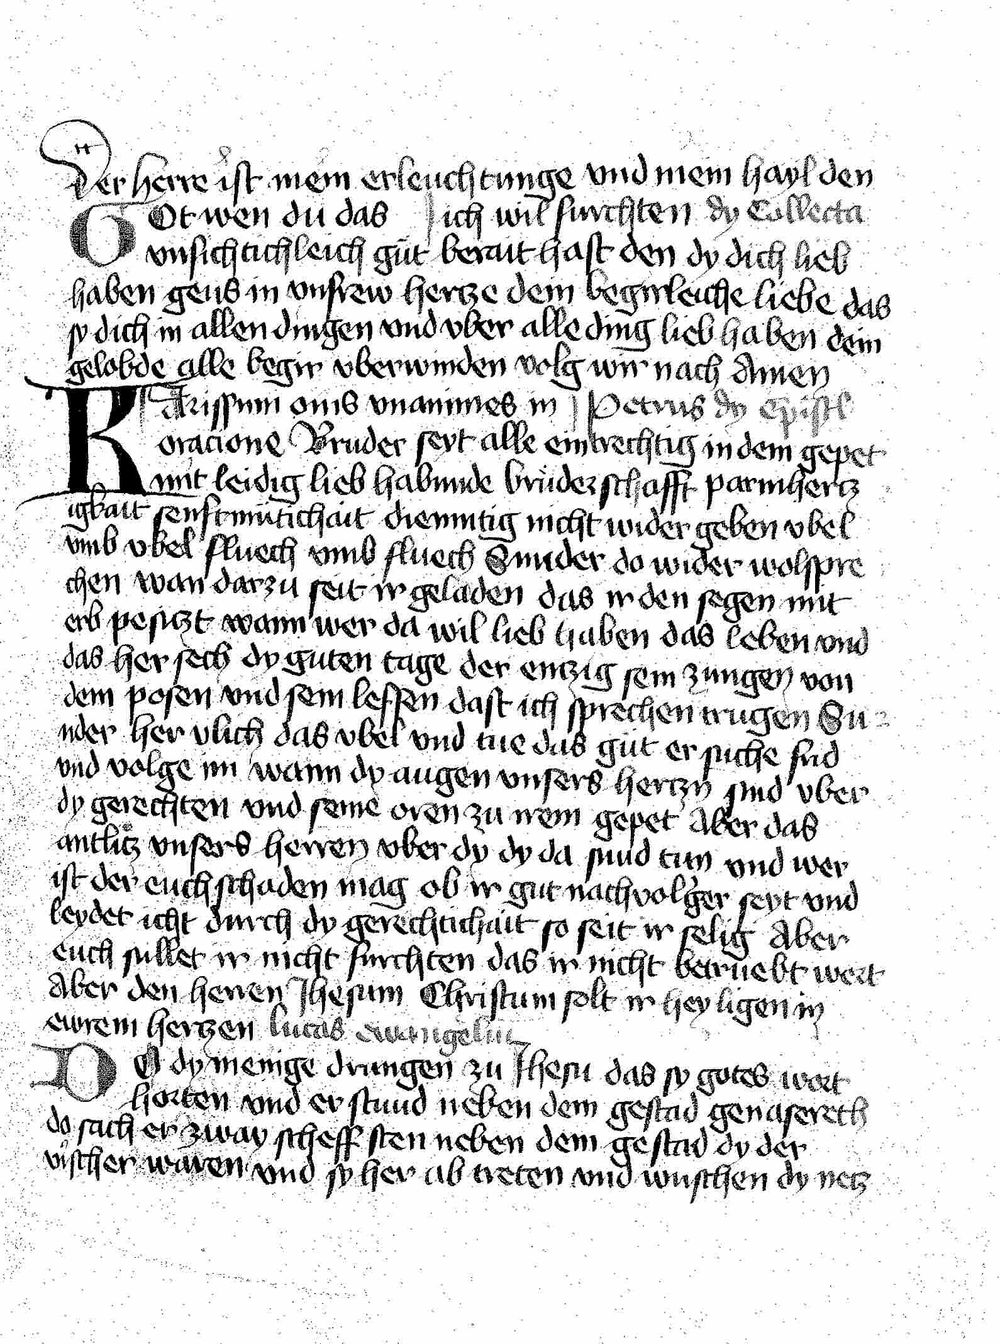 Der herre ist mein erleuchtunge vnd mein hayl den
GOt wen du das ich wil furchten dy Collecta
vnsichtichleich gůt berait hast den dy dich lieb
haben geus in vnsrew hertze dein begirleiche liebe das
sy dich in allen dingen vnd vber alle ding lieb haben dein
gelobde alle begir vberwinden volg wir nach Amen
KArissimi omnes vnanimes in Petrus dy Epistl
oracione Bruder seyt alle eintrechtig in dem gepet
mit leidig lieb habunde brůderschafft parmhertz
igkait senftmůtichait diemutig nicht wider geben vbel
vmb vbel fluech vmb fluech Sunder do wider wolspre
chen wan darzu seit ir geladen das ir den segen mit
erb pesitzt wann wer da wil lieb haben das leben vnd
das her sech dy guten tage der entzig sein zungen von
dem posen vnd sein leffen dast ich sprechen trugen Su
nder her vlich das vbel vnd tue das gůt er suche frid
vnd volge im wann dy augen vnsers hertzn sind vber
dy gerechten vnd seine oren zu irem gepet Aber das
antlitz vnsers herren vber dy dy da sund tun vnd wer
ist der euch schaden mag ob ir gut nachvolger seyt vnd
leydet icht durch dy gerechtichait so seit ir selig Aber
euch sullet ir nicht furchten das ir nicht betruebt wert
Aber den herren Jhesum Christum solt ir heyligen in
ewrem hertzen lucas ewangelium
DO dy menige drungen zu Jhesu das sy gotes wort
horten vnd er stund neben dem gestad genasereth
do sach er zway scheff sten neben dem gestad dy der
vischer waren vnd sy her ab treten vnd wuschen dy netz